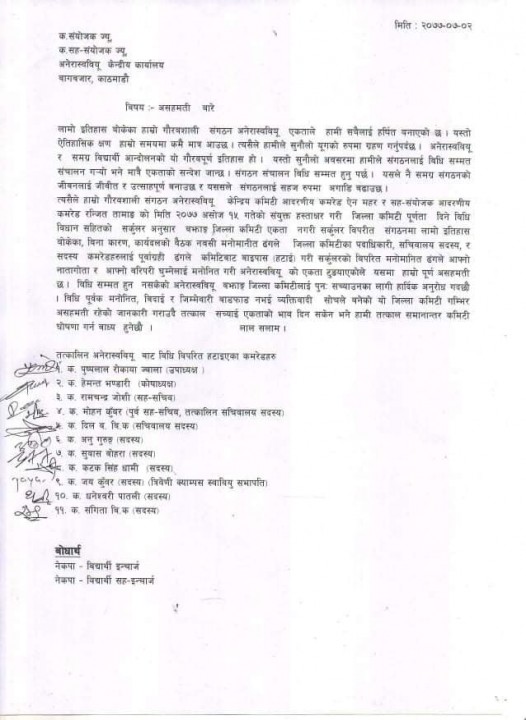 मिति : २०७७-०७-०२
क.संयोजक ज्यू,
क.सह-संयोजक ज्यू
अनेरास्ववियू केन्द्रीय कार्यालय
बागबजार, काठमाडौं
विषय :- असहमती बारे
लामो इतिहास बोकेका हाम्रो गौरवशाली संगठन अनेरास्ववियू एकताले हामी सबैलाई हर्षित बनाएको छ । यस्तो
ऐतिहासिक क्षण हाम्रो समयमा कमै मात्र आउछ । त्यसैले हामीले सुनौलो यूगको रुपमा ग्रहण गर्नुपर्दछ । अनेरास्ववियू
र समग्र विद्यार्थी आन्दोलनको यो गौरवपूर्ण इतिहास हो । यस्तो सुनौलो अवसरमा हामीले संगठनलाई विधि सम्मत
संचालन गर्‍यो भने मात्रै एकताको सन्देश जान्छ । संगठन संचालन विधि सम्मत हुनु पर्छ । यसले नै समग्र संगठनको
जीवनलाई जीवीत र उत्साहपूर्ण बनाउछ र यससले संगठनलाई सहज रुपमा अगाडि बढाउछ ।
त्यसैले हाम्रो गौरवशाली संगठन अनेरास्ववियू केन्द्रिय कमिटी आदरणीय कमरेड ऐन महर र सह-संयोजक आदरणीय
कमरेड रन्जित तामाङ को मिति २०७७ असोज १५ गतेको संयुक्त हस्ताक्षर गरी जिल्ला कमिटी पूर्णता दिने विधि
विधान सहितको सर्कुलर अनुसार बझाङ जिल्ला कमिटी एकता नगरी सर्कुलर विपरीत संगठनमा लामो इतिहास
बोकेका, बिना कारण, कार्यदलको बैठक नवसी मनोमानीत ढंगले जिल्ला कमिटीका पदाधिकारी, सचिवालय सदस्य, र
सदस्य कमरेडहरुलाई पूर्वाग्रही ढंगले कमिटिबाट बाइपास (हटाई) गरी सर्कुलरको विपरित मनोमानित ढंगले आफ्नो
नातागोता र आफ्नो वरिपरी घुम्नेलाई मनोनित गरी अनेरास्ववियू को एकता टुङ्याएकोले यसमा हाम्रो पूर्ण असहमती
छ । विधि सम्मत हुन नसकेको अनेरास्ववियू बझाङ जिल्ला कमिटीलाई पुनः सच्याउनका लागी हार्दिक अनुरोध गदछौ
। विधि पूर्वक मनोनित, विदाई र जिम्मेवारी बाडफाड नभई व्यक्तिबादी सोचले बनेको यो जिल्ला कमिटी गम्भिर
असहमती रहेको जानकारी गराउदै तत्काल सच्याई एकताको भाव दिन सकेन भने हामी तत्काल समानान्तर कमिटी
घोषणा गर्न बाध्य हुनेछौ । लाल सलाम ।
तत्कालिन अनेरास्ववियू बाट विधि विपरित हटाइएका कमरेडहरु
१. क. पुष्पलाल रोकाया ज्वाला (उपाध्यक्ष )
२. क. हेमन्त भण्डारी (कोषाध्यक्ष)
३. क. रामचन्द्र जोशी (सह-सचिब)
४. क. मोहन कुँवर (पूर्व सह-सचिव, तत्कालिन सचिवालय सदस्य)
५. क. दिल ब. वि.क (सचिवालय सदस्य)
६. क. अनु गुरुङ (सदस्य)
७. क. सुवास बोहरा (सदस्य)
८. क. कटक सिंह धामी (सदस्य)
९. क. जय कुँवर (सदस्य) (त्रिवेणी क्याम्पस स्ववियु सभापति)
१०. क. धनेश्वरी पातली (सदस्य)
११. क. संगिता बि.क (सदस्य)
बोधार्थ
नेकपा - विद्यार्थी इन्चार्ज
नेकपा - विद्यार्थी सह-इन्चार्ज